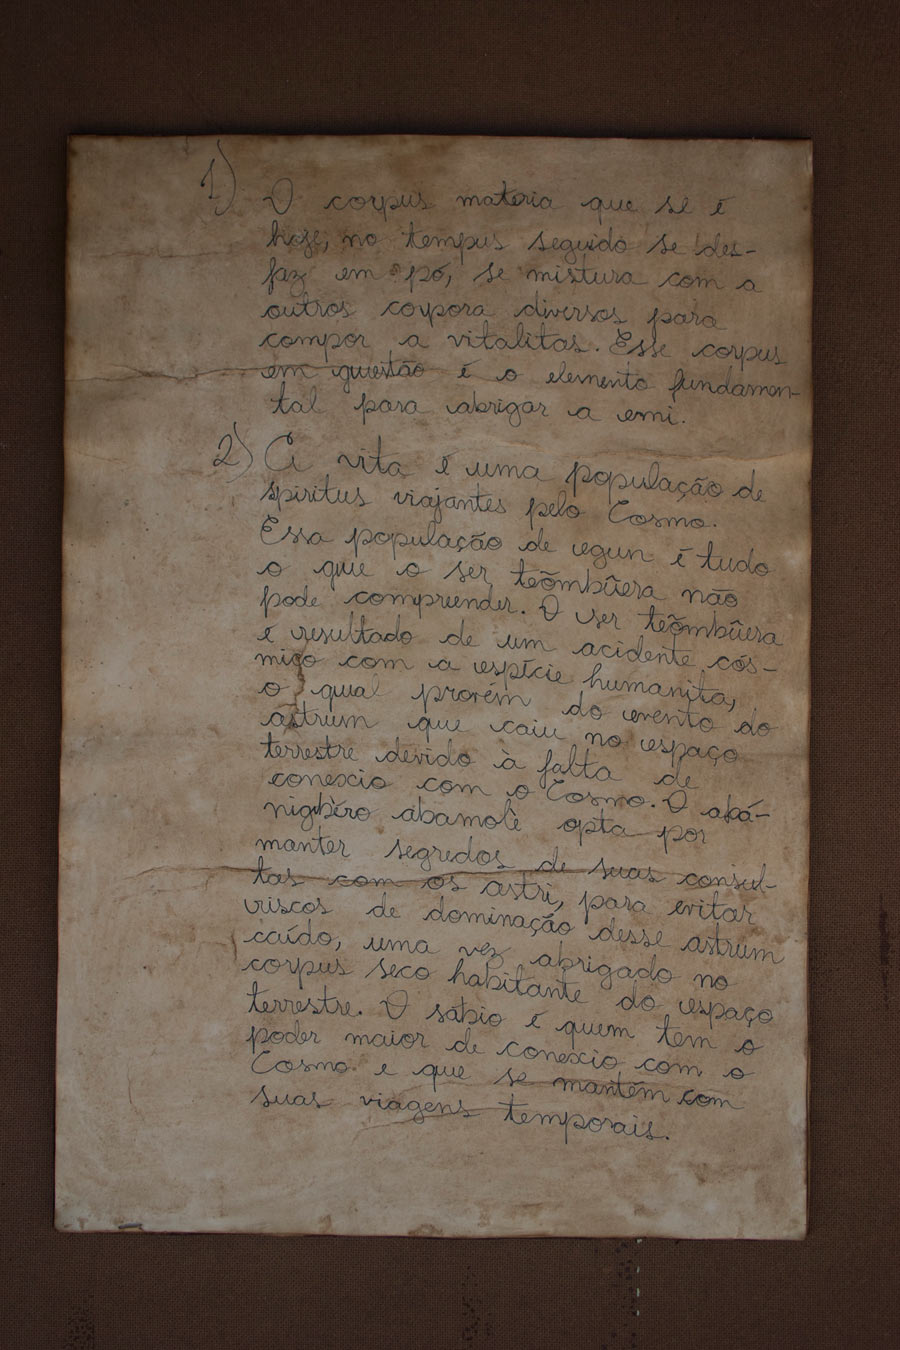 1) O corpus materia que se é
hoje, no tempus seguido se des-
faz em pó, se mistura com a
outros corpora diversos para
compor a vitalitas. Esse corpus
em questão é o elemento fundamen-
tal para abrigar a emi.
2) A vita é uma população de
spiritus viajantes pelo Cosmo.
Essa população de egun é tudo
o que o ser teõmbûera não
pode compreender. O ser teõmbûera
é resultado de um acidente cós-
mico com a espície humanita,
o qual provém do evento do
astrum que caiu no espaço
terrestre devido à falta de
conexio com o Cosmo. O abá-
nigbéro abamolê opta por
manter segredos de suas consul-
tas com os astri, para evitar
riscos de dominação desse astrum
caído, uma vez abrigado no
corpus seco habitante do espaço
terrestre. O sábio é quem tem o
poder maior de conexio com o
Cosmo e que se mantém com
suas viagens temporais.